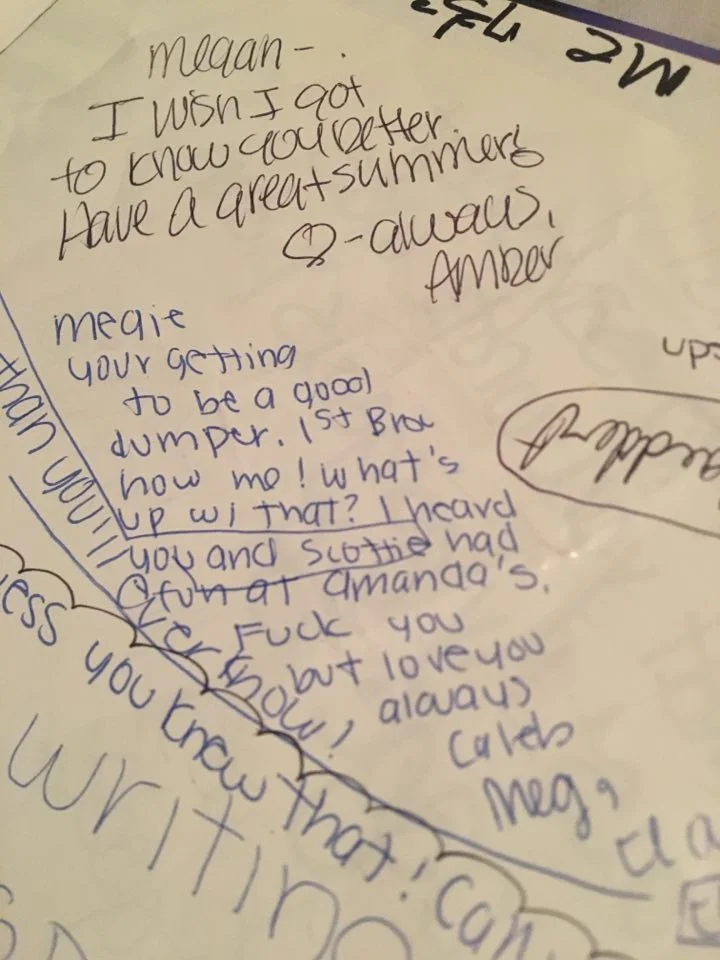 Megan-.
I wish I got
to know you better.
Have a great summer
-always,
Amber
megie
your getting
to be a good
dumper. 1st
now me! what's
up w/ that? I heard
you and Scottie had
fun at amanda's.
Fuck you
but love you
always
Caleb
Meg,
ups
than you'll
ever know!
ess you knew that! Can
writing